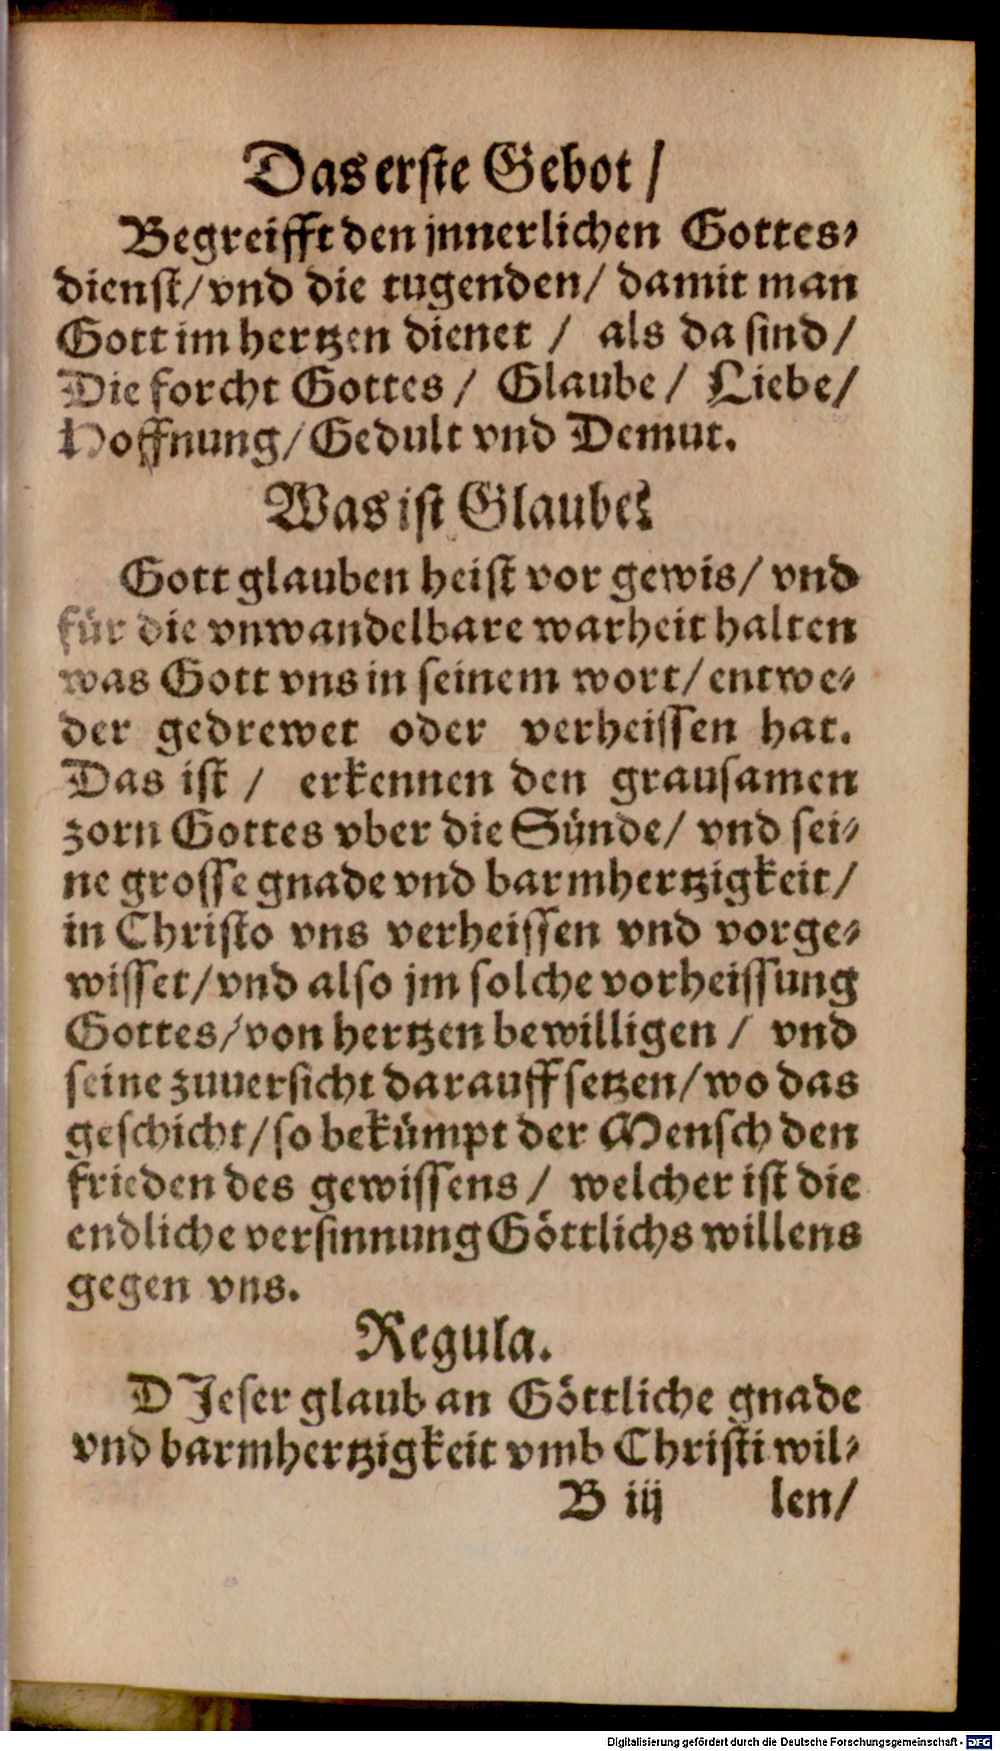 Das erste Gebot /
Begreifft den jnnerlichen Gottes-
dienst/ vnd die tugenden/ damit man
Gott im hertzen dienet / als da sind/
Die forcht Gottes / Glaube / Liebe/
Hoffnung/ Gedult vnd Demut.
Was ist Glaube?
Gott glauben heist vor gewis/ vnd
für die vnwandelbare warheit halten
was Gott vns in seinem wort/ entwe-
der gedrewet oder verheissen hat.
Das ist / erkennen den grausamen
zorn Gottes vber die Sünde/ vnd sei-
ne grosse gnade vnd barmhertzigkeit/
in Christo vns verheissen vnd vorge-
wisset/ vnd also jm solche vorheissung
Gottes/ von hertzen bewilligen / vnd
seine zuuersicht darauff setzen/ wo das
geschicht/ so bekümpt der Mensch den
frieden des gewissens / welcher ist die
endliche versinnung Göttlichs willens
gegen vns.
Regula.
DJeser glaub an Göttliche gnade
vnd barmhertzigkeit vmb Christi wil-
B iij len/
Digitalisierung gefördert durch die Deutsche Forschungsgemeinschaft - DFG